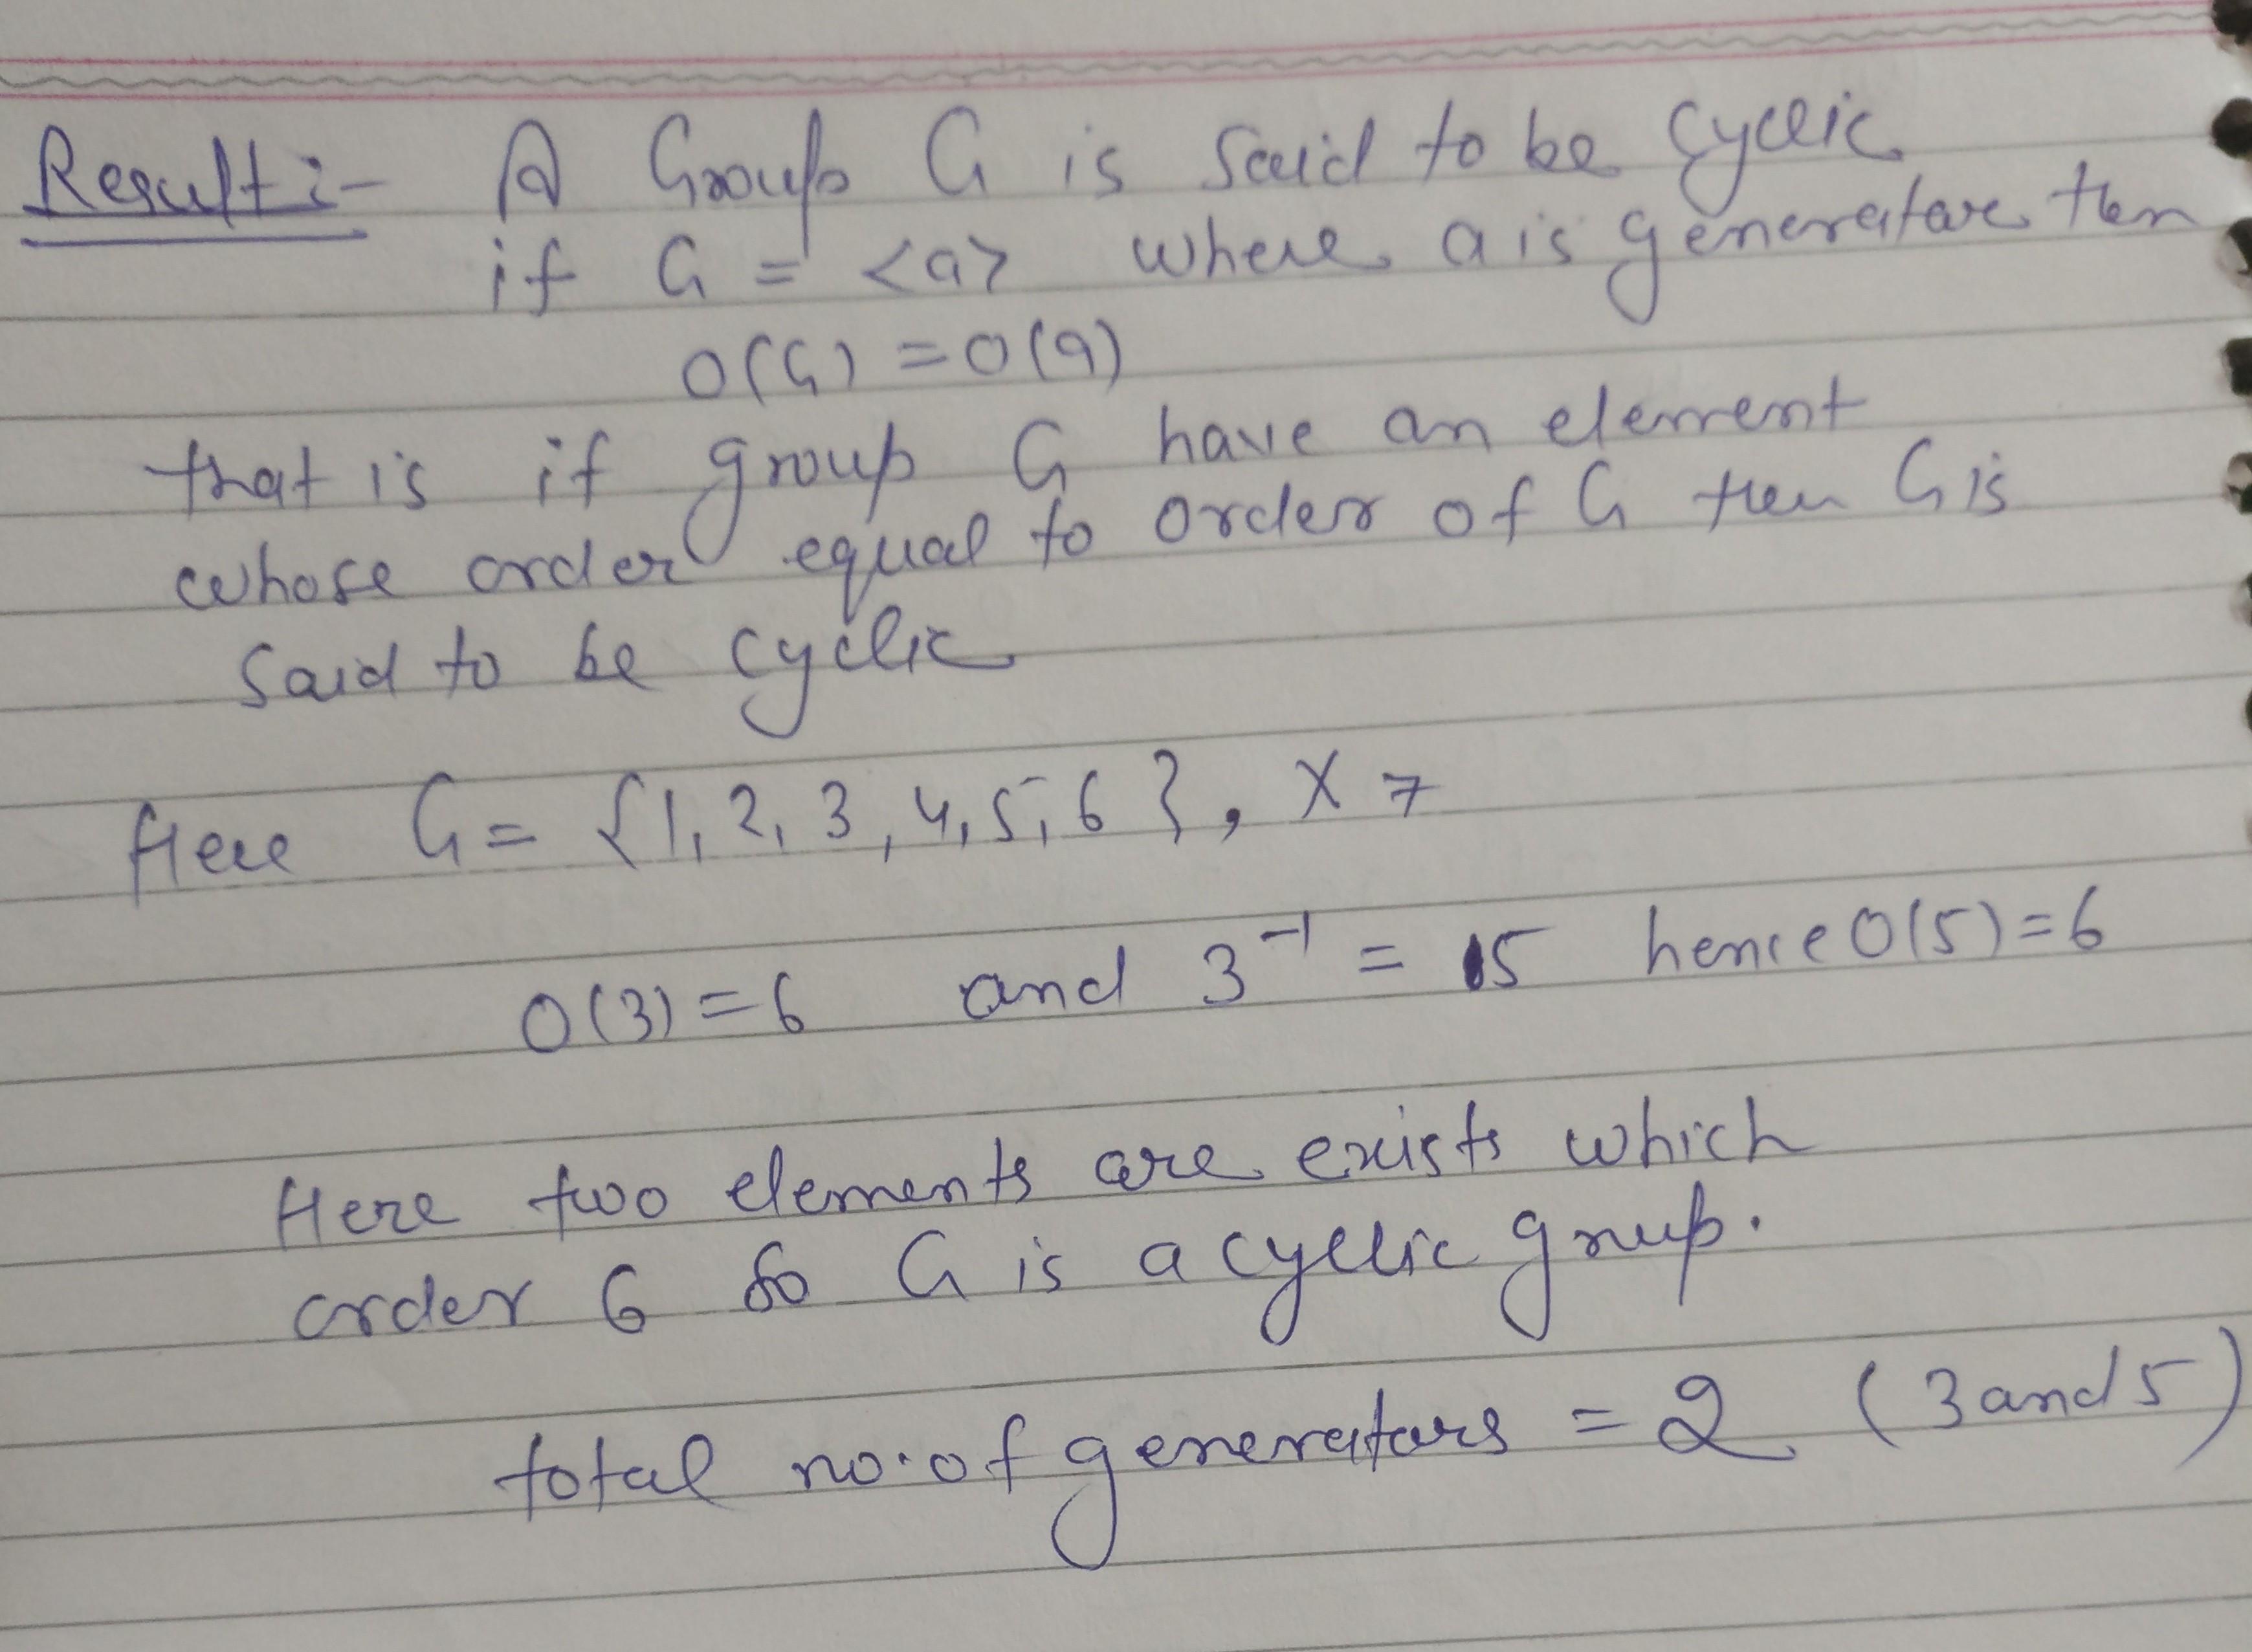 Result:- A Group G is said to be cyclic
if G = <a> where a is generator then
O(G) = O(a)
that is if group G have an element
whose order equal to order of G then G is
said to be cyclic
Here G = {1, 2, 3, 4, 5, 6}, X 7
O(3) = 6 and 3⁻¹ = 5 hence O(5) = 6
Here two elements are exists which
order 6 so G is a cyclic group.
total no. of generators = 2 (3 and 5)